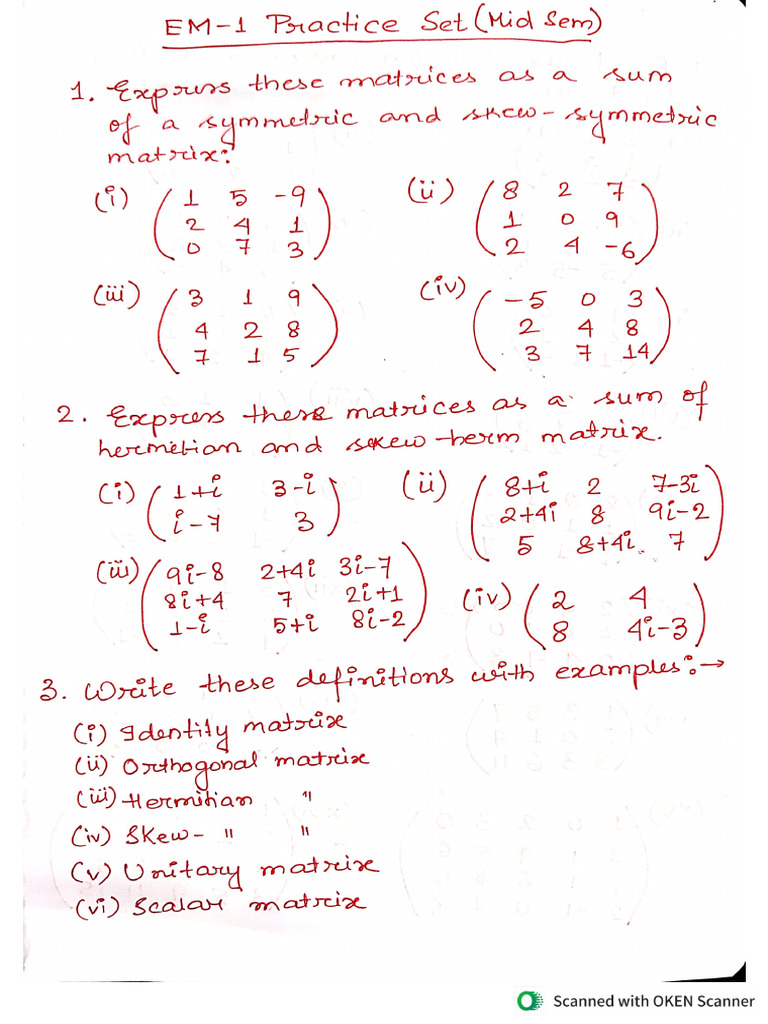 EM-1 Practice Set (Mid Sem)
1. Express these matrices as a sum
of a symmetric and skew-symmetric
matrix:
(i) ( 1 5 -9 (ii) ( 8 2 7
2 4 1 1 0 9
0 7 3 ) 2 4 -6 )
(iii) ( 3 1 9 (iv) ( -5 0 3
4 2 8 2 4 8
7 1 5 ) 3 7 14 )
2. Express these matrices as a sum of
hermetian and skew-herm matrix.
(i) ( 1+i 3-i (ii) ( 8+i 2 7-3i
i-7 3 ) 2+4i 8 9i-2
5 8+4i 7 )
(iii) ( 9i-8 2+4i 3i-7
8i+4 7 2i+1 (iv) ( 2 4
1-i 5+i 8i-2 ) 8 4i-3 )
3. Write these definitions with examples:→
(i) Identity matrix
(ii) Orthogonal matrix
(iii) Hermitian "
(iv) Skew- " "
(v) Unitary matrix
(vi) Scalar matrix
Scanned with OKEN Scanner